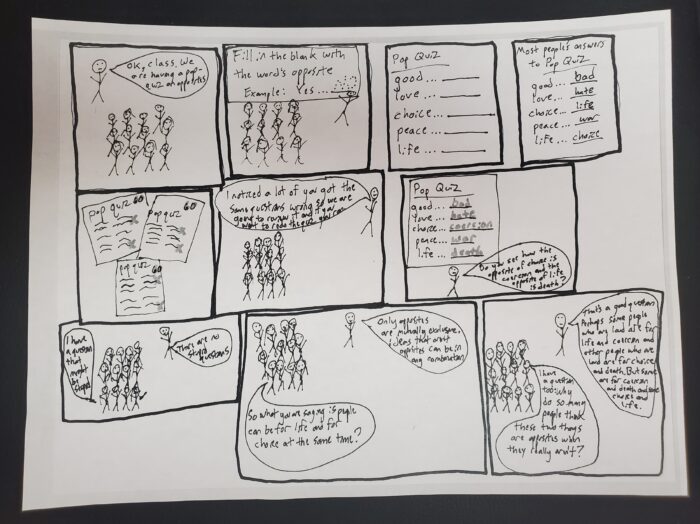 OK, class. We
are having a pop
quiz on opposites
Fill in the blank with
the word's opposite
Example: Yes
Pop Quiz
good...
love...
choice...
peace...
life...
Most people's answers
to Pop Quiz
good... bad
love... hate
choice... life
peace... war
life... choice
Pop quiz 60
Pop quiz 60
Pop quiz 60
I noticed a lot of you got the
same questions wrong so we are
going to review it and if you
want to redo the quiz you can
Pop Quiz
good... bad
love... hate
choice... coercion
peace... war
life... death
Do you see how the
opposite of choice is
coercion and the
opposite of life
is death?
I have
a question
that
might be
stupid
There are no
stupid questions
So what you are saying is people
can be for life and for
choice at the same time?
Only opposites
are mutually exclusive,
ideas that aren't
opposites can be in
any combination
I have
a question
too: why
do so many
people think
these two things
are opposites when
they really aren't?
That's a good question
Perhaps some people
who are loud are for
life and coercion and
other people who are
loud are for choice
and death. But some
are for coercion
and death and some
choice and
life.